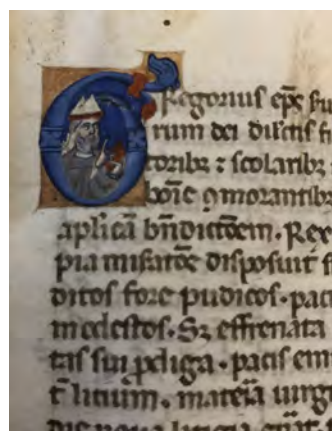 Gregorius epc̄ seru
rum dei dil̄cis fi
toribꝫ ⁊ scolaribꝫ
bon̄ie ꝯmorantibꝫ
aplicā bn̄dictōem. Rex
pia misatōe disposuit s
ditos fore pudicos. paci
modestos. Sꝫ effrenata
tas sui ꝓdiga. pacis em
r̄ litium. mateīa iurg
nova litigia